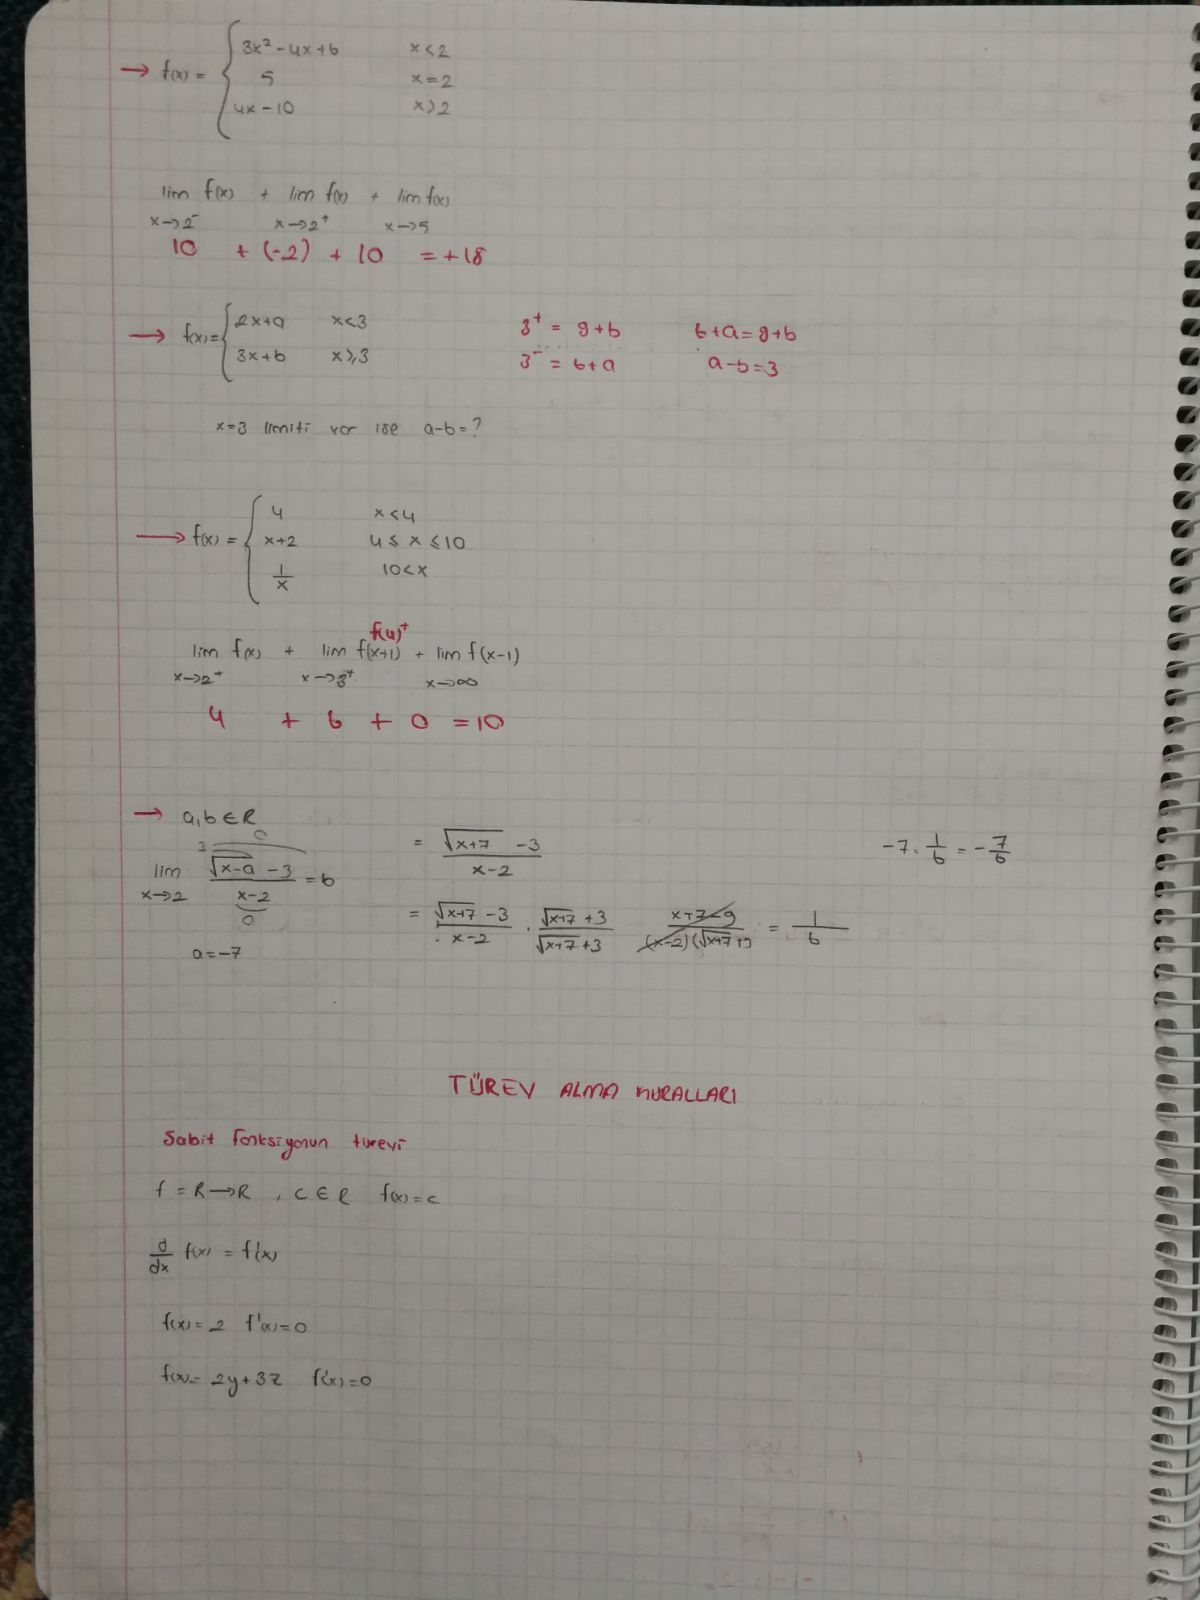 → f(x) = { 3x² - 4x + 6    x < 2
5    x = 2
4x - 10    x > 2
lim f(x) + lim f(x) + lim f(x)
x→2⁻    x→2⁺    x→5
10 + (-2) + 10 = +18
→ f(x) = { 2x+a    x<3    3⁺ = 9+b    6+a = 9+b
3x+b    x⩾3    3⁻ = 6+a    a-b=3
x=3 limiti var ise a-b=?
→ f(x) = { 4    x<4
x+2    4 ≤ x ≤ 10
1/x    10<x
f(4)⁺
lim f(x) + lim f(x+1) + lim f(x-1)
x→2⁺    x→3⁺    x→∞
4 + 6 + 0 = 10
→ a,b ∈ R
0
3
lim (√(x-a) - 3)/(x-2) = b    = (√(x+7) - 3)/(x-2)    -7 . 1/6 = -7/6
x→2
0
= (√(x+7) - 3)/(x-2) . (√(x+7) + 3)/(√(x+7) + 3)    (x+7-9)/((x-2)(√(x+7)+3) = 1/6
a = -7
TÜREV ALMA KURALLARI
Sabit fonksiyonun türevi
f = R→R , C ∈ R f(x) = c
d/dx f(x) = f'(x)
f(x) = 2 f'(x) = 0
f(x) = 2y+3z f'(x) = 0